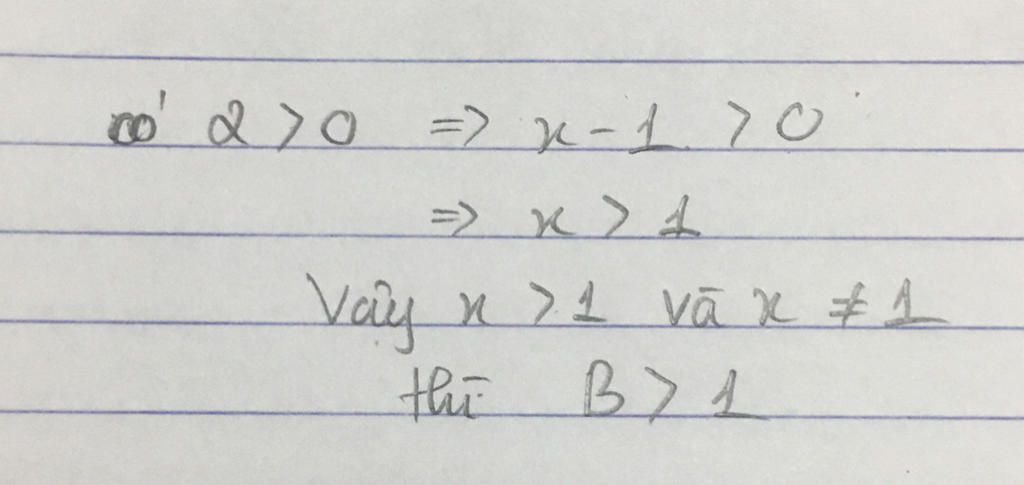 có 2 > 0 => x - 1 > 0
=> x > 1
Vậy x > 1 và x ≠ 1
thì B > 1